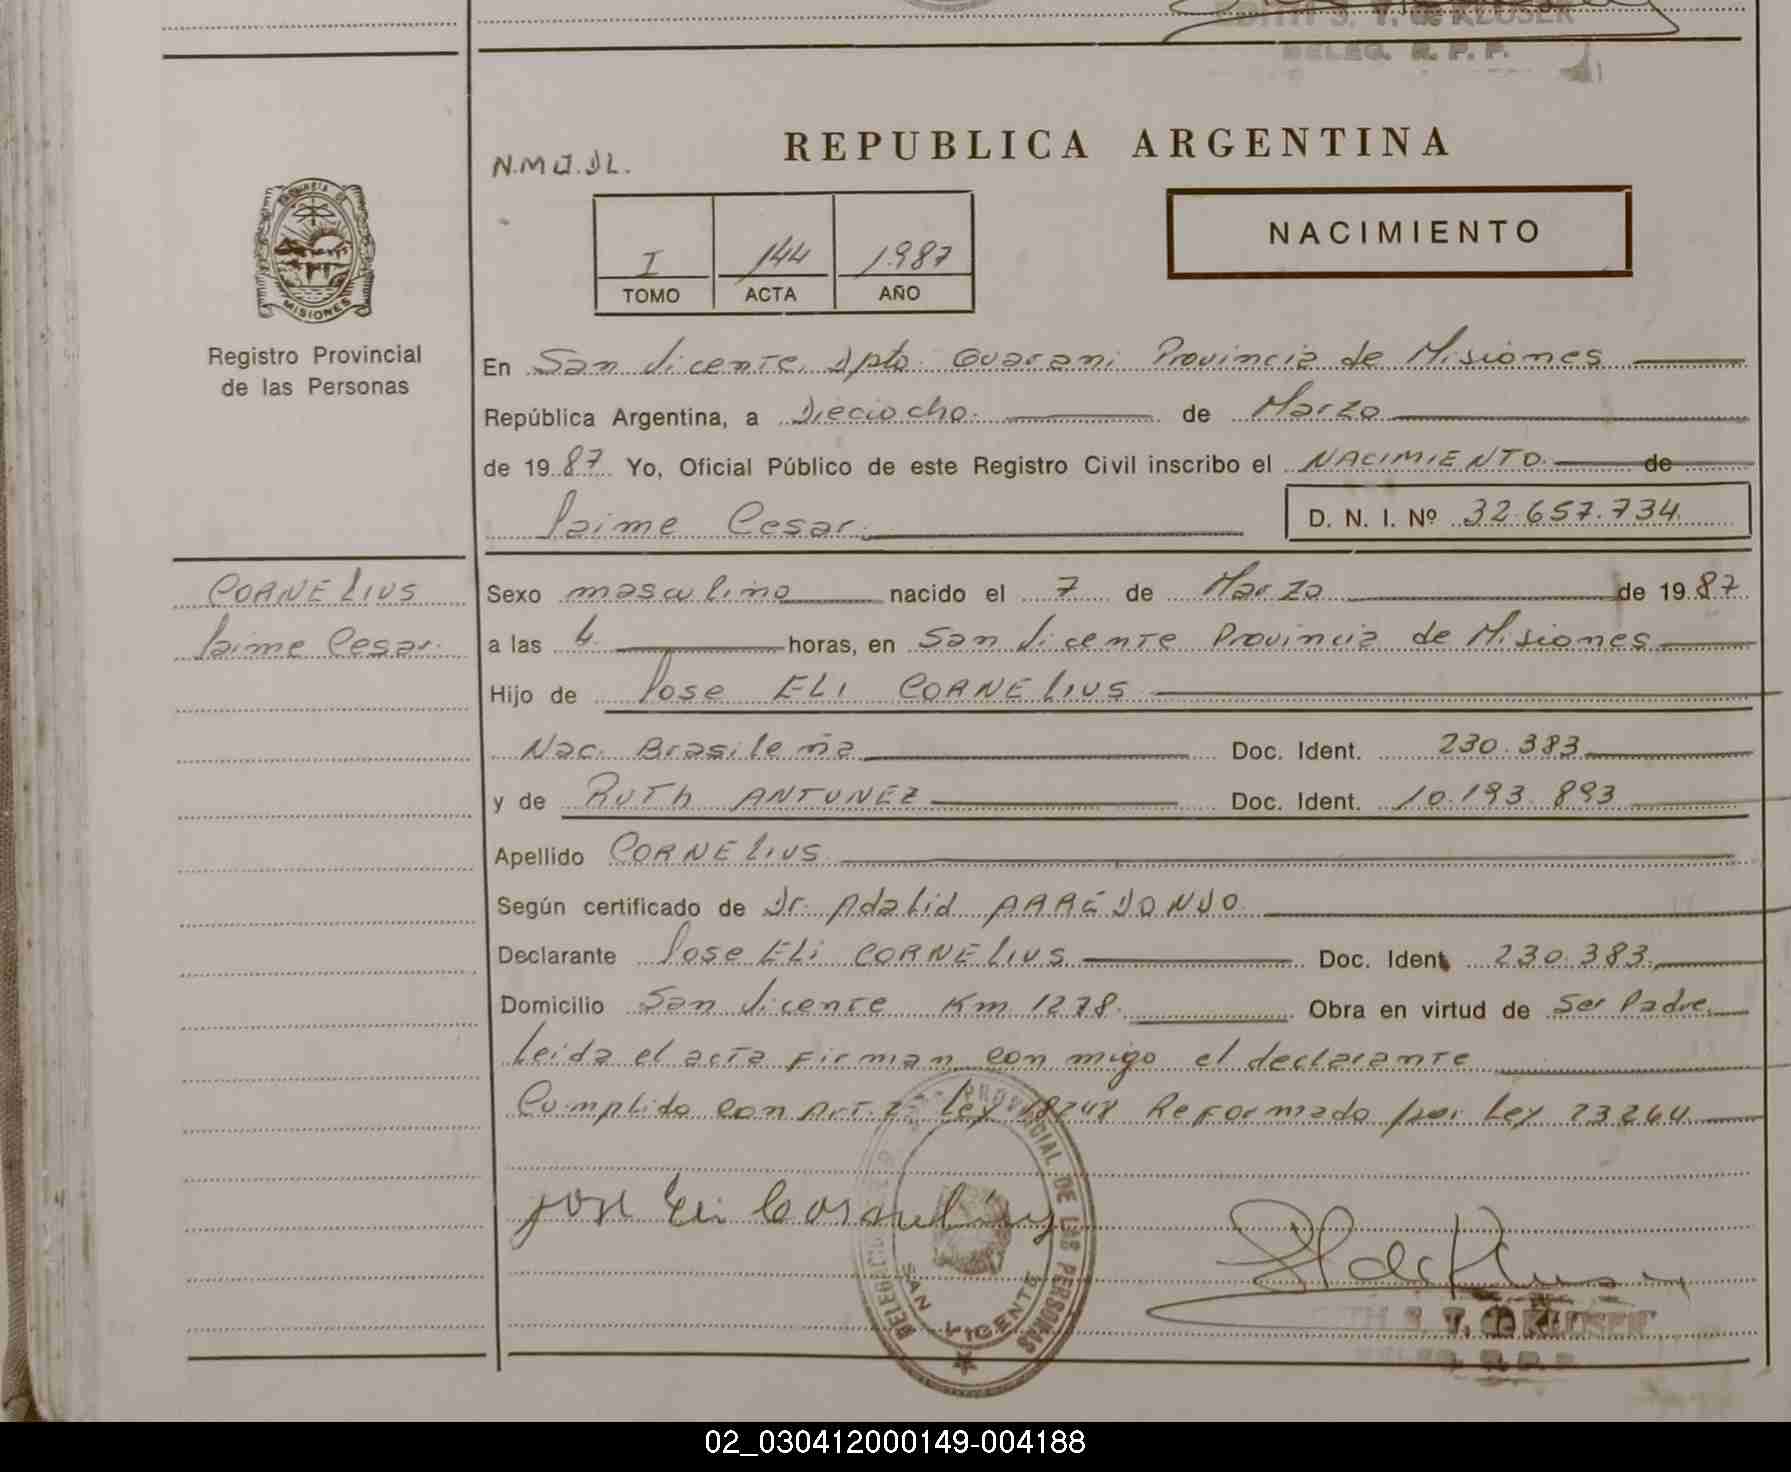 EDITH S. T. de KLUSER
DELEG. R. P. P.
REPUBLICA ARGENTINA
NACIMIENTO
I 144 1987
TOMO ACTA AÑO
MISIONES
Registro Provincial
de las Personas
En San Vicente. Dpto. Guarani Provincia de Misiones
República Argentina, a Dieciocho. de Marzo
de 1987 Yo, Oficial Público de este Registro Civil inscribo el NACIMIENTO de
Jaime Cesar. D. N. I. Nº 32.657.734
CORNELIUS
Jaime Cesar.
Sexo masculino nacido el 7 de Marzo de 1987
a las 4 horas, en San Vicente Provincia de Misiones
Hijo de Jose ELI CORNELIUS
Nac. Brasileña Doc. Ident. 230.383
y de RUTH ANTUNEZ Doc. Ident. 10.193.893
Apellido CORNELIUS
Según certificado de Dr. Adalid ARREDONDO
Declarante Jose ELI CORNELIUS Doc. Ident. 230.383
Domicilio San Vicente Km 1278. Obra en virtud de Ser Padre
Leida el acta Firman con migo el declarante
Cumplido con Art. 2 Ley 18248 Reformado por Ley 23264
Jose Eli Cornelius
DELEGACION PROVINCIAL DE LAS PERSONAS
SAN VICENTE
EDITH S. T. de KLUSER
DELEG. R. P. P.
02_030412000149-004188